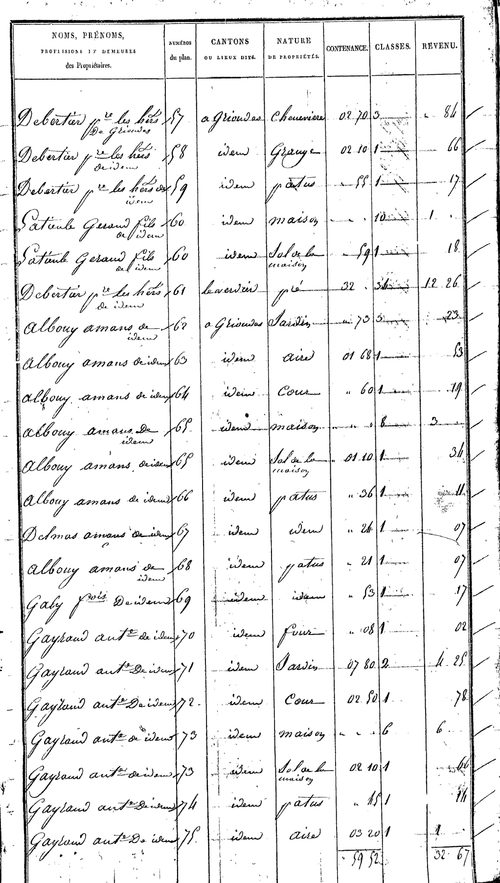 NOMS, PRÉNOMS, PROFESSIONS ET DEMEURES des Propriétaires. NUMÉROS du plan. CANTONS OU LIEUX DITS. NATURE DE PROPRIÉTÉS. CONTENANCE. CLASSES. REVENU.
Debertier pre les hérs de Grioudas 57 a Grioudas Cheneviere 02 70 3 " 84
Debertier pre les hérs de idem 58 idem Grange 02 10 1 66
Debertier pre les hérs de idem 59 idem patus " 55 1 17
Géraud fils de idem 60 idem maison " " 10 1 "
Géraud fils de idem 60 idem Sol de la maison " 59 1 18
Debertier pre les hérs de idem 61 pré 32 " 34 12 26
Albouy amans de idem 62 a Grioudas Jardin " 73 3 23
Albouy amans de idem 63 idem aire 01 68 1 53
Albouy amans de idem 64 idem Cour " 60 1 19
Albouy amans De idem 65 idem maison " " 8 3 "
Albouy amans de idem 65 idem Sol de la maison 01 10 1 34
Albouy amans de idem 66 idem patus " 36 1 11
Delmas amans de idem 67 idem idem " 24 1 07
Albouy amans de idem 68 idem patus " 21 1 07
Galy fçois De idem 69 idem idem " 53 1 17
Gayraud ante de idem 70 idem four " 08 1 02
Gayraud ante De idem 71 idem Jardin 07 80 2 4 25
Gayraud ante De idem 72 idem Cour 02 50 1 78
Gayraud ante de idem 73 idem maison " " 6 6 "
Gayraud ante de idem 73 idem Sol de la maison 02 10 1 66
Gayraud ante De idem 74 idem patus " 45 1 14
Gayraud ante De idem 75 idem aire 03 20 1 1 "
59 52 32 67